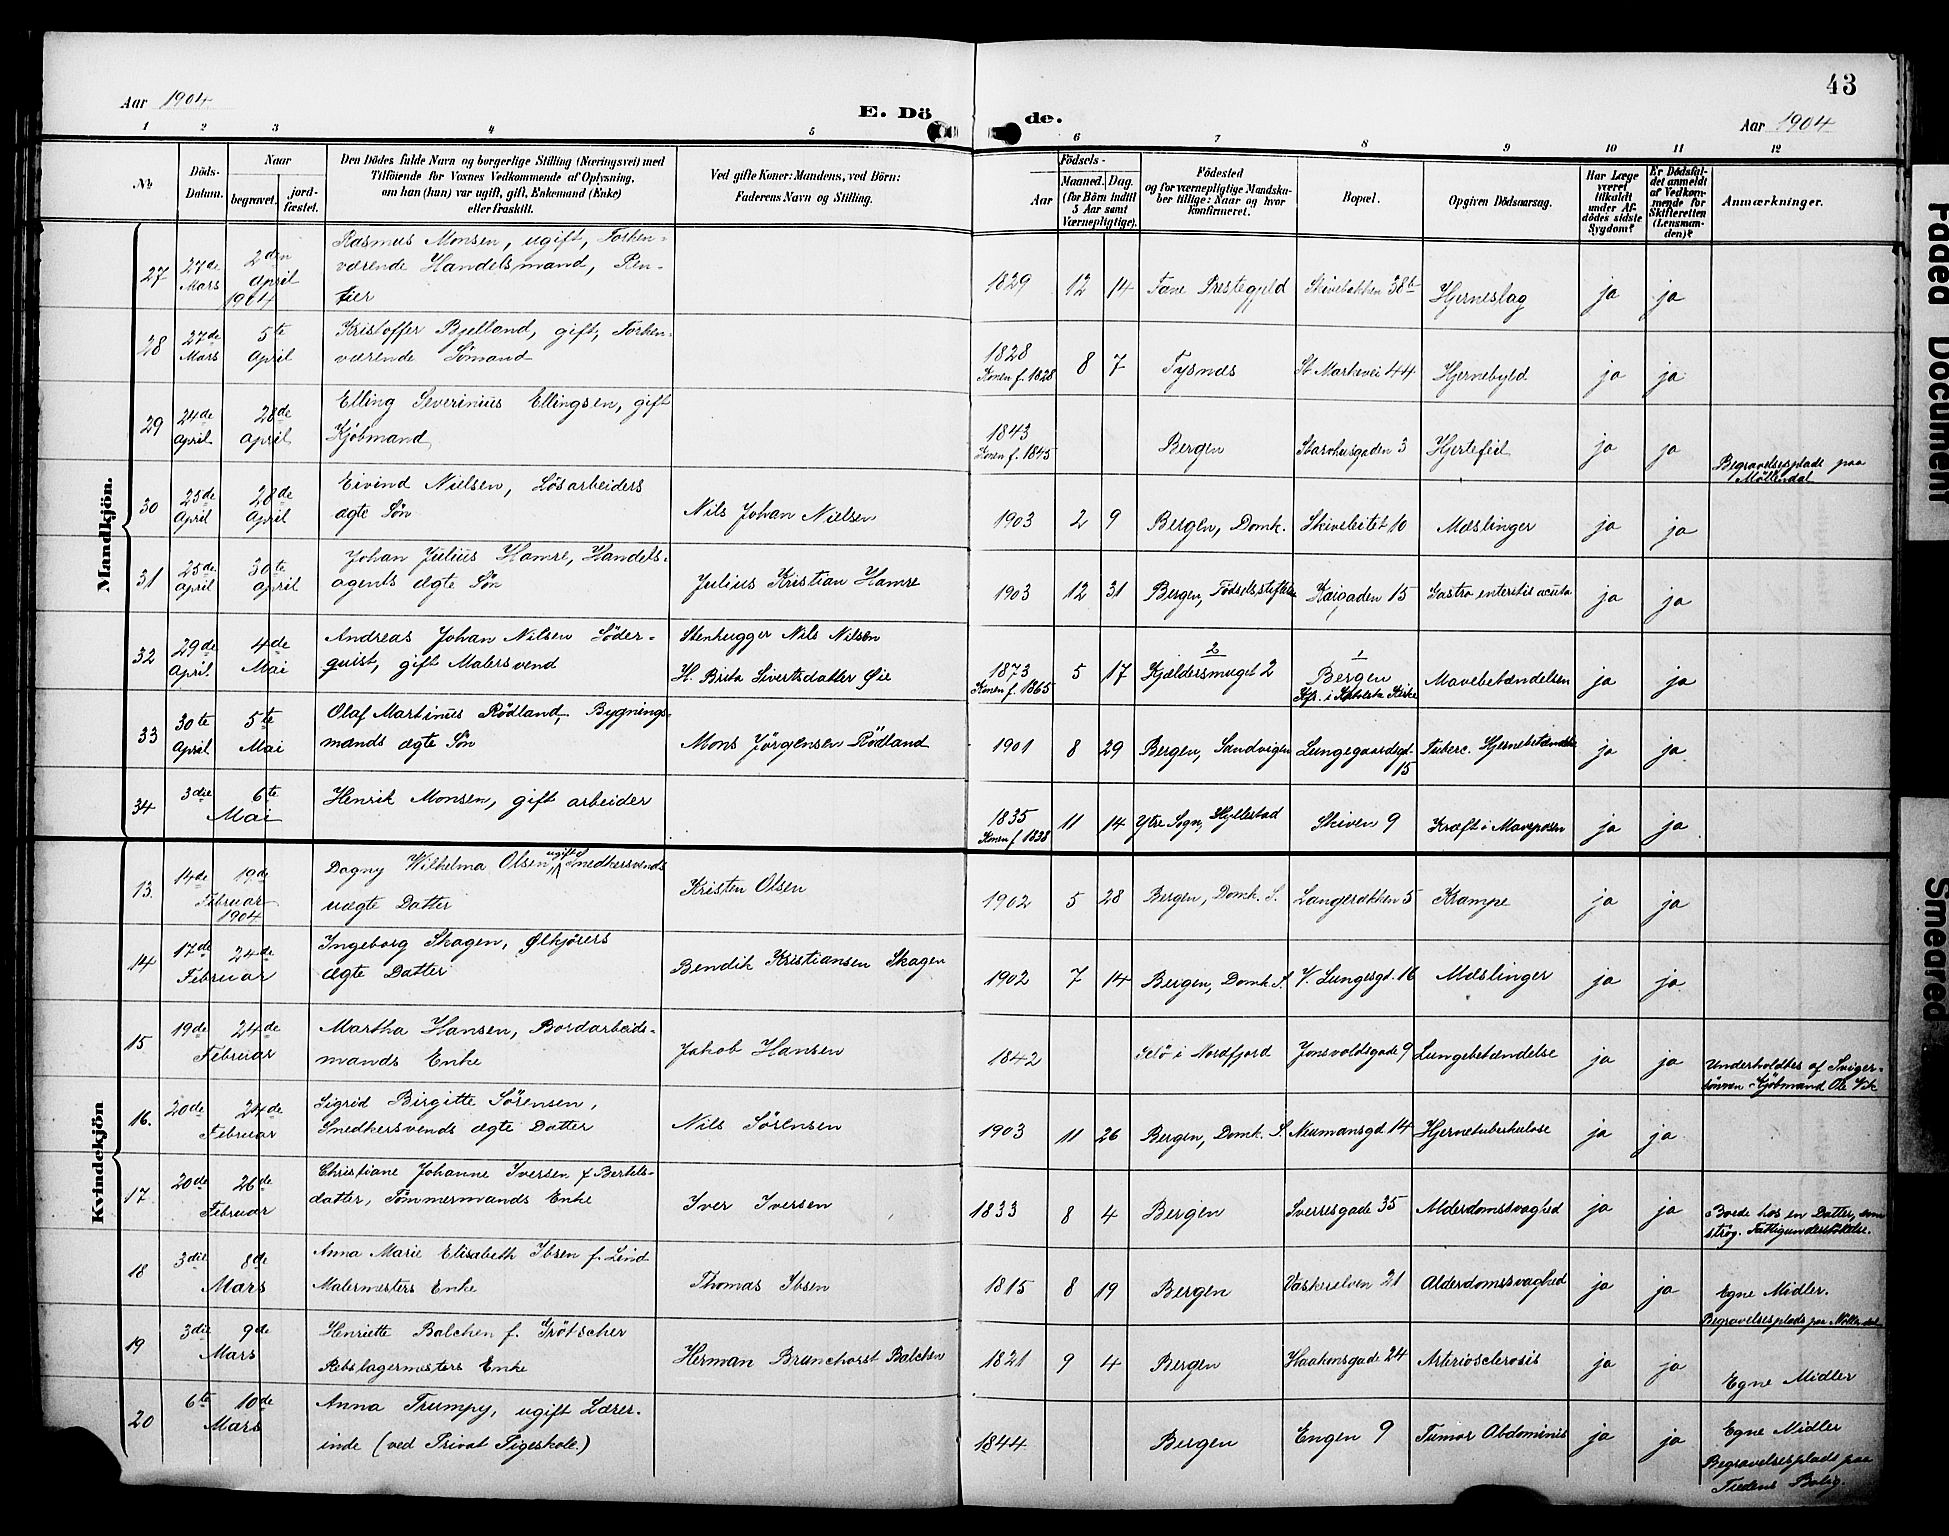 43
Aar 1904
E. Dö
de.
Aar 1904
1 2 3 4 5 6 7 8 9 10 11 12
No
Döds-
Datum.
Naar
begravet.
jord-
fæstet.
Den Dödes fulde Navn og borgerlige Stilling (Næringsvei) med
Tilföiende for Voxnes Vedkommende af Oplysning,
om han (hun) var ugift, gift, Enkemand (Enke)
eller fraskilt.
Ved gifte Koner: Mandens, ved Börn:
Faderens Navn og Stilling.
Födsels-
Aar
Maaned.
Dag.
(for Börn indtil
5 Aar samt
Værnepligtige).
Födested
og for værnepligtige Mandska-
ber tillige: Naar og hvor
konfirmeret.
Bopæl.
Opgiven Dödsaarsag.
Har Læge
været
tilkaldt
under Af-
dödes sidste
Sygdom?
Er Dödsfal-
det anmeldt
af Vedkom-
mende for
Skifteretten
(Lensman-
den)?
Anmærkninger.
Mandkjön.
27 27de Mars 2den April 1904 Rasmus Monsen, ugift, Forhen-
værende Handelsmand, Ren-
tier
1829 12 14 Fane Prestegjeld Skivebakken 38b Hjerneslag ja ja
28 27de Mars 5te April Kristoffer Bjelland, gift, Forhen-
værende Sömand
1828 8 7 Tysnæs St. Markevei 44 Hjernebyld ja ja
Konen f. 1828
29 24de April 28de April Elling Severinius Ellingsen, gift
Kjöbmand
1843 Bergen Starvhusgaden 3 Hjertefeil ja ja
Konen f. 1845
Begravelsesplads paa
Möllendal
30 25de April 28de April Eivind Nielsen, Lösarbeiders
ægte Sön
Nils Johan Nielsen
1903 2 9 Bergen, Domk. Skiveleitet 10 Mæslinger ja ja
31 25de April 30te April Johan Julius Hamre, Handels-
agents ægte Sön
Julius Kristian Hamre
1903 12 31 Bergen, Födselsstiftelse Kaigaden 15 Gastro enteritis acuta ja ja
32 29de April 4de Mai Andreas Johan Nilsen Söder-
quist, gift Malersvend
Stenhugger Nils Nilsen
H. Brita Sivertsdatter Øie
1873 5 17 2 Kjeldersmuget 2 1 Bergen Mavebetændelsen ja ja
Konen f. 1865
33 30te April 5te Mai Olaf Martinus Rödland, Bygnings-
mands ægte Sön
Mons Jörgensen Rödland
1901 8 29 Bergen, Sandvigen Lungegaardsgd. 15 Tuberc. Hjernebetændelse ja ja
34 3die 6te Mai Henrik Monsen, gift arbeider
1835 11 14 Ytre Sogn, Hyllestad Skiven 9 Kræft i Maveposen ja ja
Konen f. 1838
Kvindekjön
13 14de 19de Februar 1904 Dagny Wilhelma Olsen, ugift Snedkersvends
uægte Datter
Kristen Olsen
1902 5 28 Bergen, Domk. S. Langerækken 5 Krampe ja ja
14 17de 24de Februar Ingeborg Skagen, Ølkjörers
ægte Datter
Bendik Kristiansen Skagen
1902 7 14 Bergen, Domk. S. V. Lungegd. 16 Mæslinger ja ja
15 19de 24de Februar Martha Hansen, Bordarbeids-
mands Enke
Jakob Hansen
1842 Selö i Nordfjord Jonsvoldsgade 9 Lungebetændelse ja ja
Underholdtes af Sviger-
sönnen Kjöbmand Ole Vik
16. 20de 24de Februar Sigrid Birgitte Sörensen,
Snedkersvends ægte Datter
Nils Sörensen
1903 11 26 Bergen, Domk. S. Neumansgd. 14 Hjernetuberkulose ja ja
17 20de 26de Februar Christiane Johanne Iversen f. Bertels-
datter, Tömmermands Enke
Iver Iversen
1833 8 4 Bergen Sverresgade 35 Alderdomssvaghed ja ja
Boede hos en Datter, som
strög. Fattigunderstöttelse.
18 3die 8de Mars Anna Marie Elisabeth Ibsen f. Lind
Malermesters Enke
Thomas Ibsen
1815 8 19 Bergen Vaskerelven 21 Alderdomssvaghed ja ja
Egne Midler.
Begravelsesplads paa Möllendal
19 3die 9de Mars Henriette Balchen f. Grötscher
Rebslagermesters Enke
Herman Brunchorst Balchen
1821 9 4 Bergen Haakonsgade 24 Arteriosclerosis ja ja
Egne Midler
20 6te 10de Mars Anna Trumpy, ugift Lærer-
inde (ved Privat Pigeskole.)
1844 Bergen Engen 9 Tumor Abdominis ja ja
Egne Midler
Begravelsesplads paa
Fredens Bolig.
Faded Document
Smeared